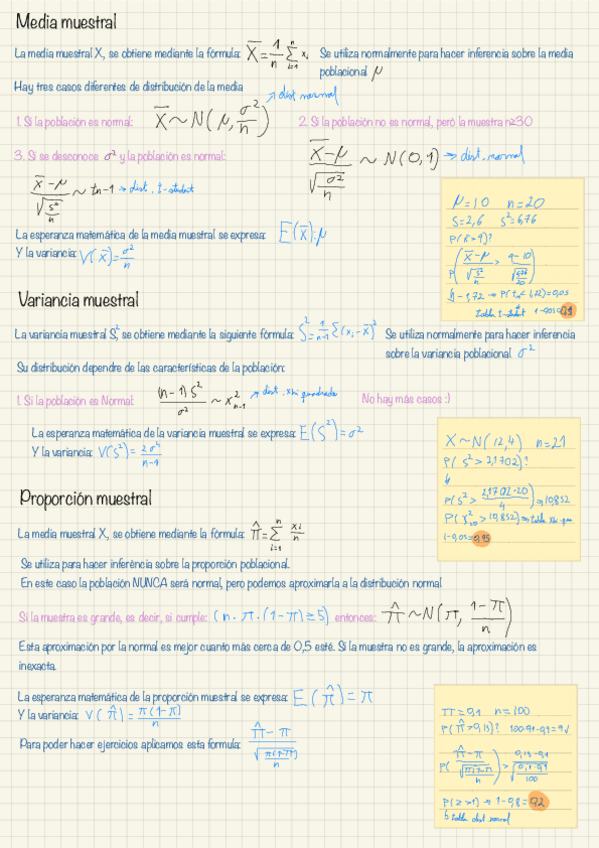 Media muestral
La media muestral X, se obtiene mediante la fórmula: X̄ = 1/n Σ(i=1, n) xᵢ Se utiliza normalmente para hacer inferencia sobre la media
poblacional μ
Hay tres casos diferentes de distribución de la media
→ dist normal
1. Si la población es normal: X̄ ~ N(μ, σ²/n) 2. Si la población no es normal, pero la muestra n≥30
3. Si se desconoce σ² y la población es normal: (X̄ - μ)/√(σ²/n) ~ N(0,1) → dist. normal
(X̄ - μ)/√(s²/n) ~ tn-1 → dist. t-student
μ=10 n=20
S=2,6 s²=6,76
La esperanza matemática de la media muestral se expresa: E(x̄)=μ
Y la varianza: V(x̄) = σ²/n
Variancia muestral
La variancia muestral S², se obtiene mediante la siguiente fórmula: S² = 1/(n-1) Σ(xᵢ - x̄)² Se utiliza normalmente para hacer inferencia
sobre la variancia poblacional σ²
Su distribución dependre de las características de la población:
1. Si la población es Normal: (n-1)S²/σ² ~ x²n-1 → dist. xhi quadrada No hay más casos :)
La esperanza matemática de la variancia muestral se expresa: E(S²)=σ²
Y la varianza: V(S²) = 2σ⁴/(n-1)
X~N(12,4) n=21
P(S² > 2,1702)?
P(S² > 2,1702·20/4) → 10,852
1-0,05=0,95
Proporción muestral
La media muestral X, se obtiene mediante la fórmula: π̂ = Σ(i=1, n) xᵢ/n
Se utiliza para hacer inferència sobre la proporción poblacional.
En este caso la población NUNCA será normal, pero podemos aproximarla a la distribución normal
Si la muestra es grande, es decir, si cumple: (n·π·(1-π)≥5) entonces: π̂ ~ N(π, (1-π)/n)
Esta aproximación por la normal es mejor cuanto más cerca de 0,5 esté. Si la muestra no es grande, la aproximación es
inexacta.
La esperanza matemática de la proporción muestral se expresa: E(π̂) = π
Y la varianza: V(π̂) = π(1-π)/n
Para poder hacer ejercicios aplicamos esta formula: (π̂ - π)/√(π(1-π)/n)
π=0,1 n=100
P(π̂>0,15)?
P(z>1) → 1-0,8=0,2
tabla dist normal